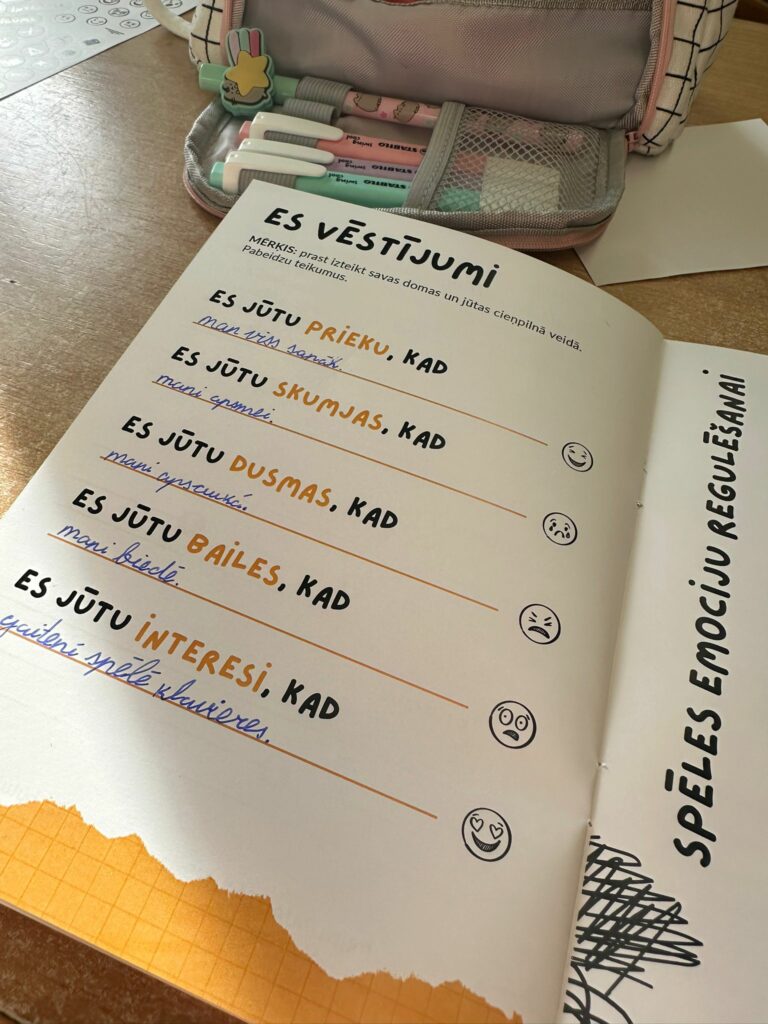 ES VĒSTĪJUMI
MĒRĶIS: prast izteikt savas domas un jūtas cieņpilnā veidā.
Pabeidzu teikumus.
ES JŪTU PRIEKU, KAD
man viss sanāk.
ES JŪTU SKUMJAS, KAD
mani
ES JŪTU DUSMAS, KAD
mani
ES JŪTU BAILES, KAD
mani biedē.
ES JŪTU INTERESI, KAD
gaitenī spēlē klavieres.
SPĒLES EMOCIJU REGULĒŠANAI
STABILO swing cool
STABILO swing cool
STABILO swing cool